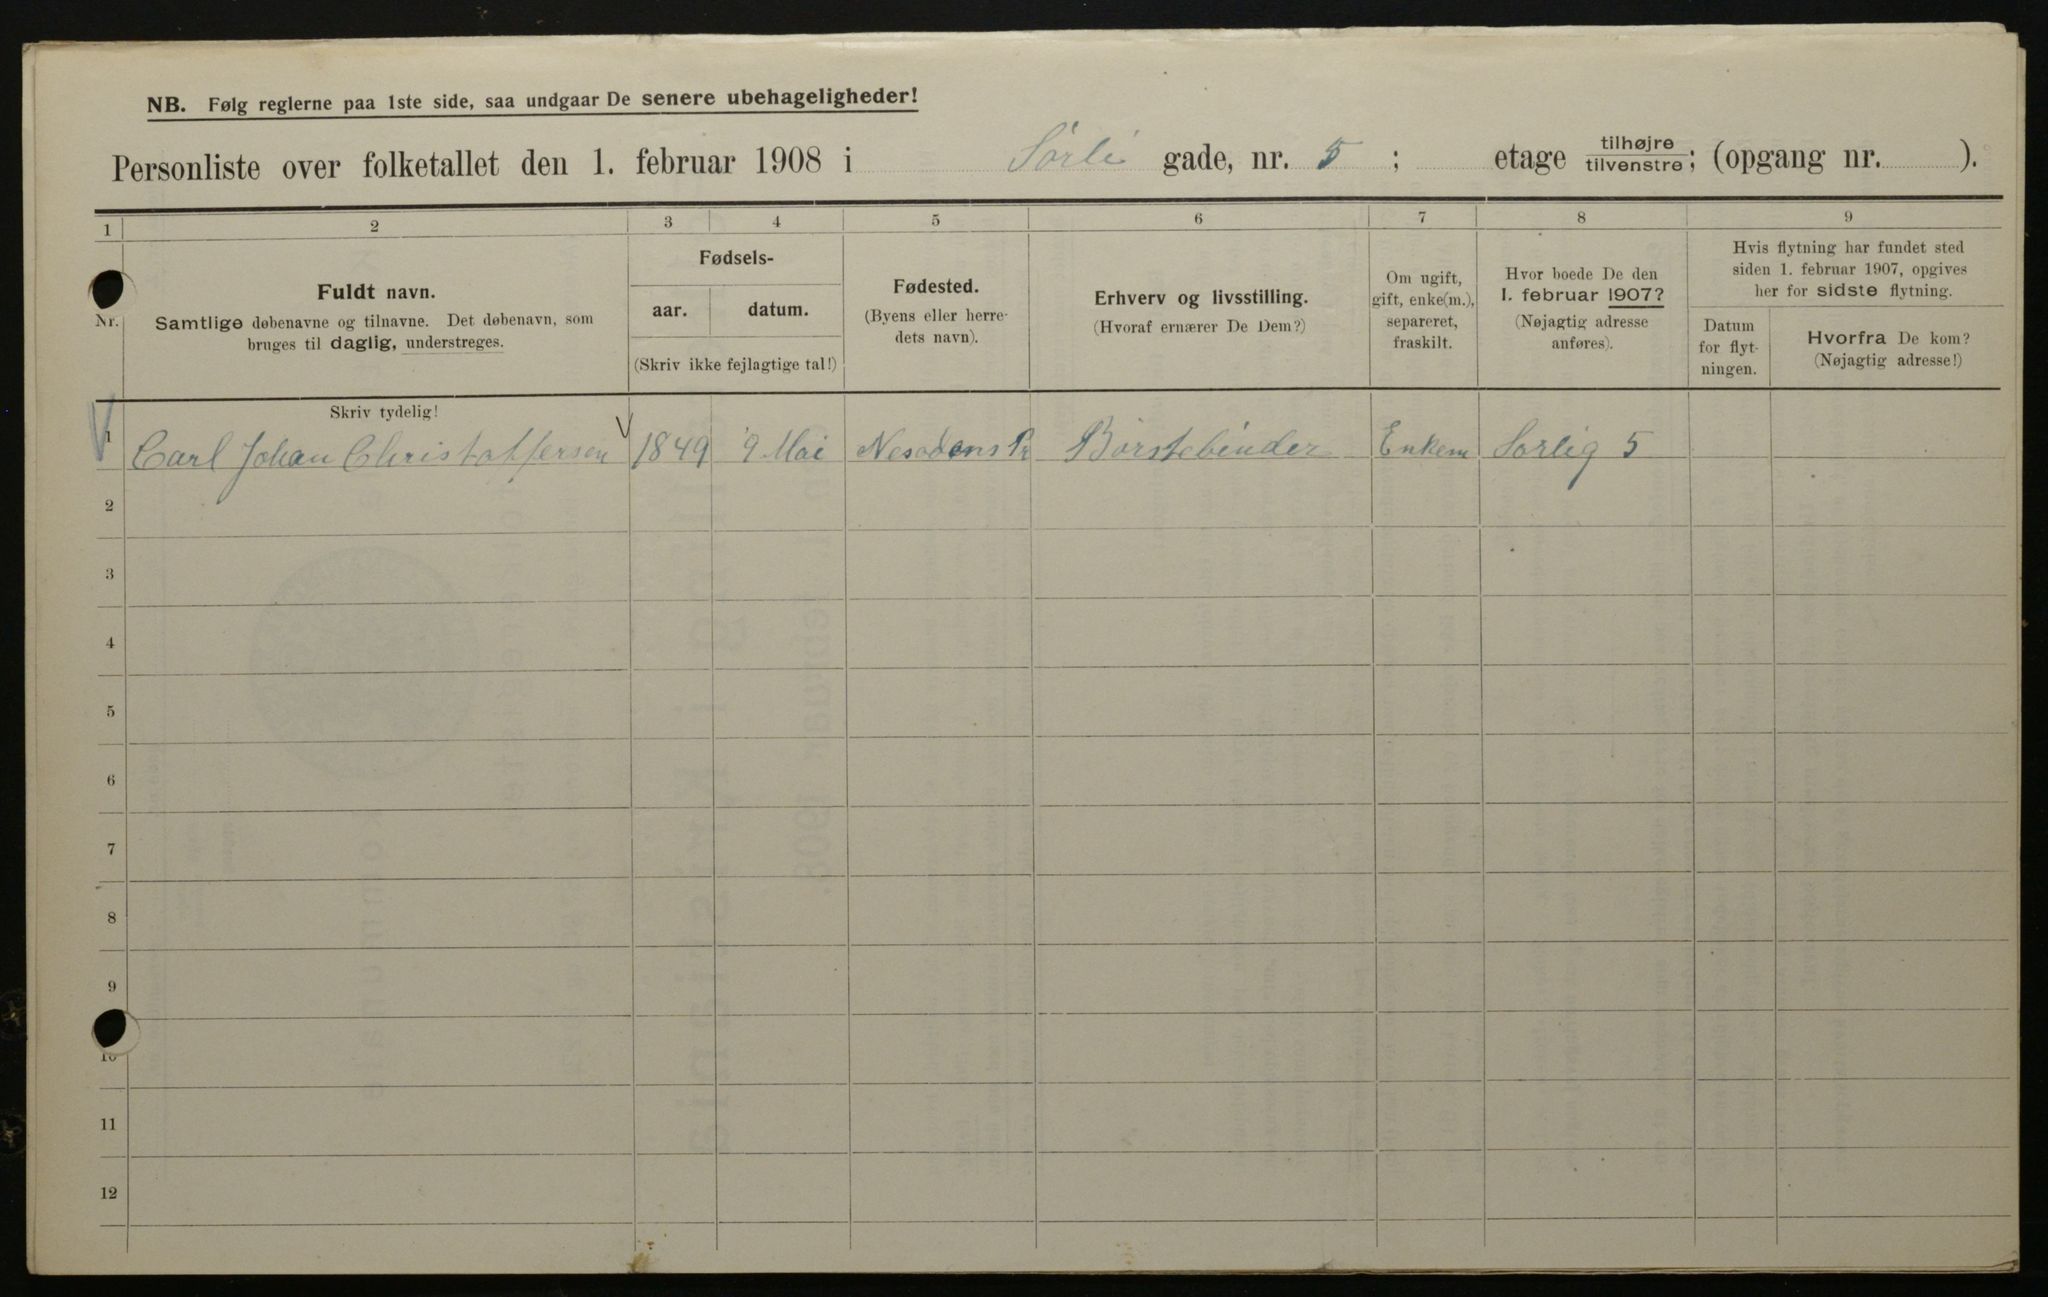 NB. Følg reglerne paa 1ste side, saa undgaar De senere ubehageligheder!
Personliste over folketallet den 1. februar 1908 i Sørli gade, nr. 5 ; etage tilhøjre/tilvenstre; (opgang nr. ).
1 2 3 4 5 6 7 8 9
Nr.
Fuldt navn.
Samtlige døbenavne og tilnavne. Det døbenavn, som
bruges til daglig, understreges.
Fødsels-
aar. datum.
(Skriv ikke fejlagtige tal!)
Fødested.
(Byens eller herre-
dets navn).
Erhverv og livsstilling.
(Hvoraf ernærer De Dem?)
Om ugift,
gift, enke(m.),
separeret,
fraskilt.
Hvor boede De den
1. februar 1907?
(Nøjagtig adresse
anføres).
Hvis flytning har fundet sted
siden 1. februar 1907, opgives
her for sidste flytning.
Datum
for flyt-
ningen.
Hvorfra De kom?
(Nøjagtig adresse!)
Skriv tydelig!
1 Carl Johan Christoffersen 1849 9 Mai Nesodens Pr Børstebinder Enkem Sorlig 5
2
3
4
5
6
7
8
9
10
11
12